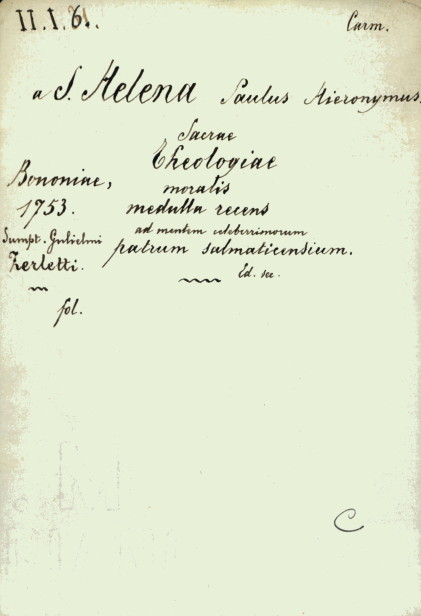 II.I.6.
Carm.
a S. Helena Paulus Hieronymus.
Sacrae
theologiae
moralis
medulla recens
ad mentem celeberrimorum
patrum salmaticensium.
Ed. sec.
Bononiae,
1753.
Sumpt. Gulielmi
Zerletti.
fol.
C